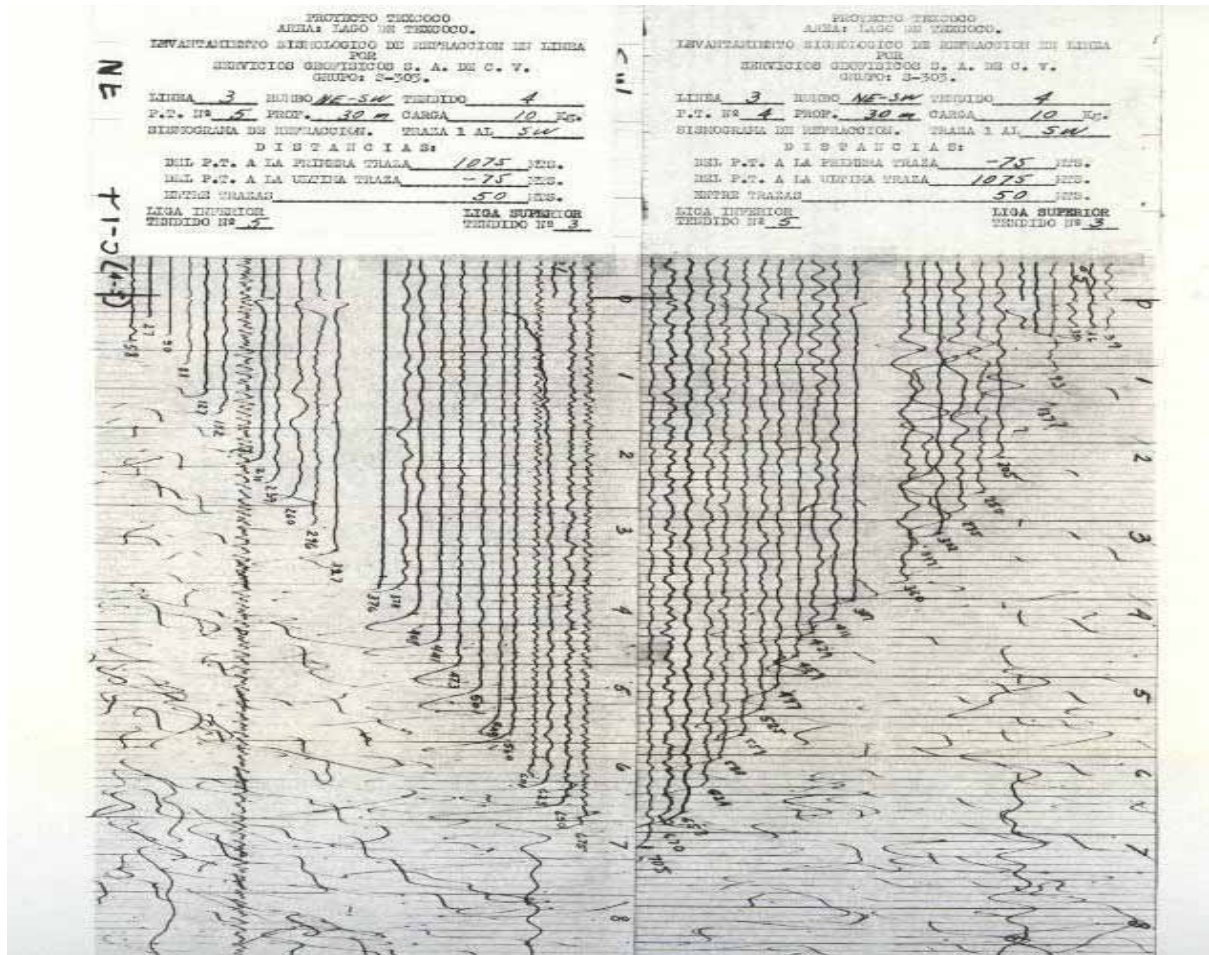 PROYECTO TEXCOCO
AREA: LAGO DE TEXCOCO.
LEVANTAMIENTO SISMOLOGICO DE REFRACCION EN LINEA
POR
SERVICIOS GEOFISICOS S. A. DE C. V.
GRUPO: S-303.
LINEA 3 RUMBO NE-SW TENDIDO 4
P.T. Nº 5 PROF. 30 m CARGA 10 KG.
SISMOGRAMA DE REFRACCION. TRAZA 1 AL SW
DISTANCIAS:
DEL P.T. A LA PRIMERA TRAZA 1075 MTS.
DEL P.T. A LA ULTIMA TRAZA -75 MTS.
ENTRE TRAZAS 50 MTS.
LIGA INFERIOR LIGA SUPERIOR
TENDIDO Nº 5 TENDIDO Nº 3
NE
0
1
2
3
4
5
6
7
8
58
27
30
88
127
152
239
260
296
327
376
378
441
473
530
650
PROYECTO TEXCOCO
AREA: LAGO DE TEXCOCO.
LEVANTAMIENTO SISMOLOGICO DE REFRACCION EN LINEA
POR
SERVICIOS GEOFISICOS S. A. DE C. V.
GRUPO: S-303.
LINEA 3 RUMBO NE-SW TENDIDO 4
P.T. Nº 4 PROF. 30 m CARGA 10 KG.
SISMOGRAMA DE REFRACCION. TRAZA 1 AL SW
DISTANCIAS:
DEL P.T. A LA PRIMERA TRAZA -75 MTS.
DEL P.T. A LA ULTIMA TRAZA 1075 MTS.
ENTRE TRAZAS 50 MTS.
LIGA INFERIOR LIGA SUPERIOR
TENDIDO Nº 5 TENDIDO Nº 3
0
1
2
3
4
5
6
7
8
39
93
205
360
411
429
525
670
705